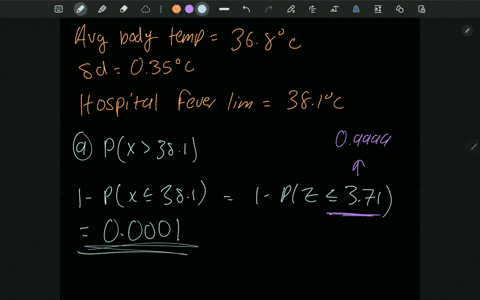 Avg body temp = 36.8°C
sd = 0.35°C
Hospital Fever lim = 38.1°C
ⓐ P(X > 38.1)
0.9999
↑
1 - P(X ≤ 38.1) = 1 - P(Z ≤ 3.71)
= 0.0001